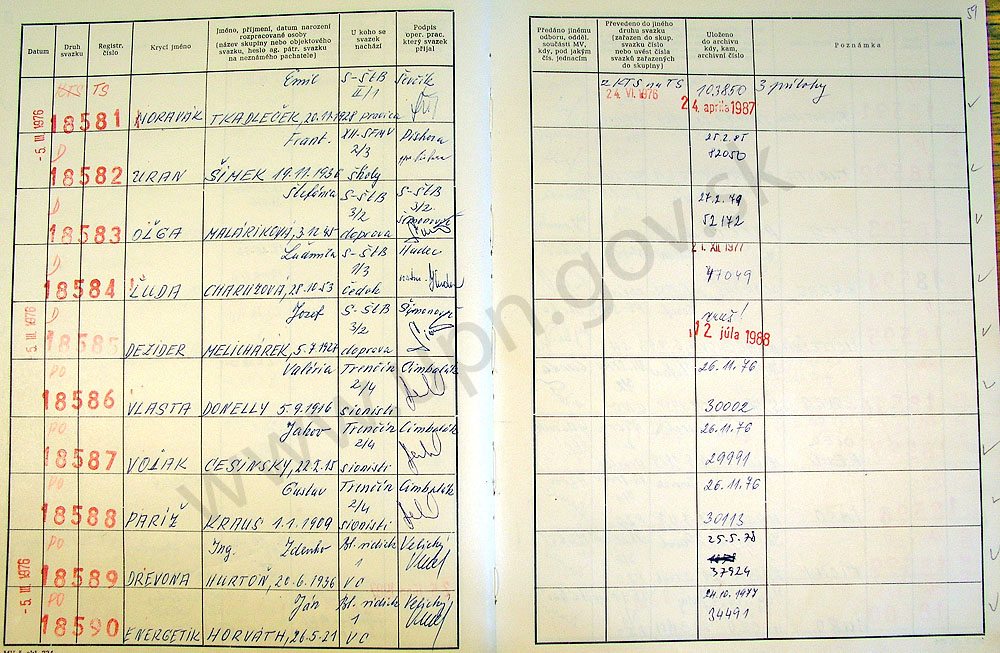 59
Datum
Druh svazku
Registr. číslo
Krycí jméno
Jméno, příjmení, datum narození
rozpracované osoby
(název skupiny nebo objektového
svazku, heslo ag. pátr. svazku
na neznámého pachatele)
U koho se
svazek
nachází
Podpis
oper. prac.
který svazek
přijal
Předáno jinému
odboru, odděl.
součásti MV,
kdy, pod jakým
čís. jednacím
Převedeno do jiného
druhu svazku
(zařazen do skup.
svazku číslo
nebo uvést čísla
svazků zařazených
do skupiny)
Uloženo
do archivu
kdy, kam,
archivní číslo
Poznámka
KTS TS Emil S-ŠtB Ševčík z KTS na TS 103850 3 prílohy
II/1 24. VI. 1976 24. apríla 1987
-5. III. 1976 18581 MORAVÁK TKADLEČEK, 20.11.1928 pravica
D Frant. XII-SFMV Piskora 25.2.85
2/3 12050
18582 URAN ŠIMEK 19.11.1936 školy
D Stefánia S-ŠtB S-ŠtB 27.2.79
3/2 3/2 52172
18583 OĽGA MALÁRIKOVÁ, 3.12.45 doprava
D Ľudmila S-ŠtB Hudec XII. 1977
1/3 47049
18584 ĽUDA CHARUZOVÁ, 28.10.53 Čedok
D Jozef S-ŠtB
3/2 12 júla 1988
-5. III. 1976 18585 DEZIDER MELICHÁREK, 5.7.1927 doprava
PO Valéria Trenčín Cimbalák 26.11.76
2/4
18586 VLASTA DONELLY 5.9.1916 sionisti 30002
PO Jakov Trenčín Cimbalák 26.11.76
2/4
18587 VOJAK CESINSKY, 22.2.15 sionisti 29991
PO Gustav Trenčín Cimbalák 26.11.76
2/4
18588 PARÍŽ KRAUS 1.1.1909 sionisti 30113
PO Ing. Zdenko Velický 25.5.78
1
-5. III. 1976 18589 DREVONA HURTOŇ, 20.6.1936 VC 37924
PO Ján Velický 24.10.1977
1 34491
18590 ENERGETIK HORVÁTH, 26.5.21 VC
www.upn.gov.sk